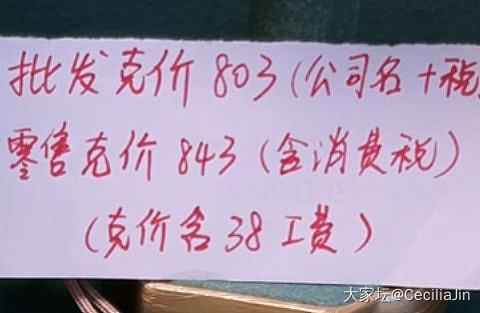 批发克价803(公司名+税
零售克价843(含消费税)
(克价含38工费)
大家坛@CeciliaJin